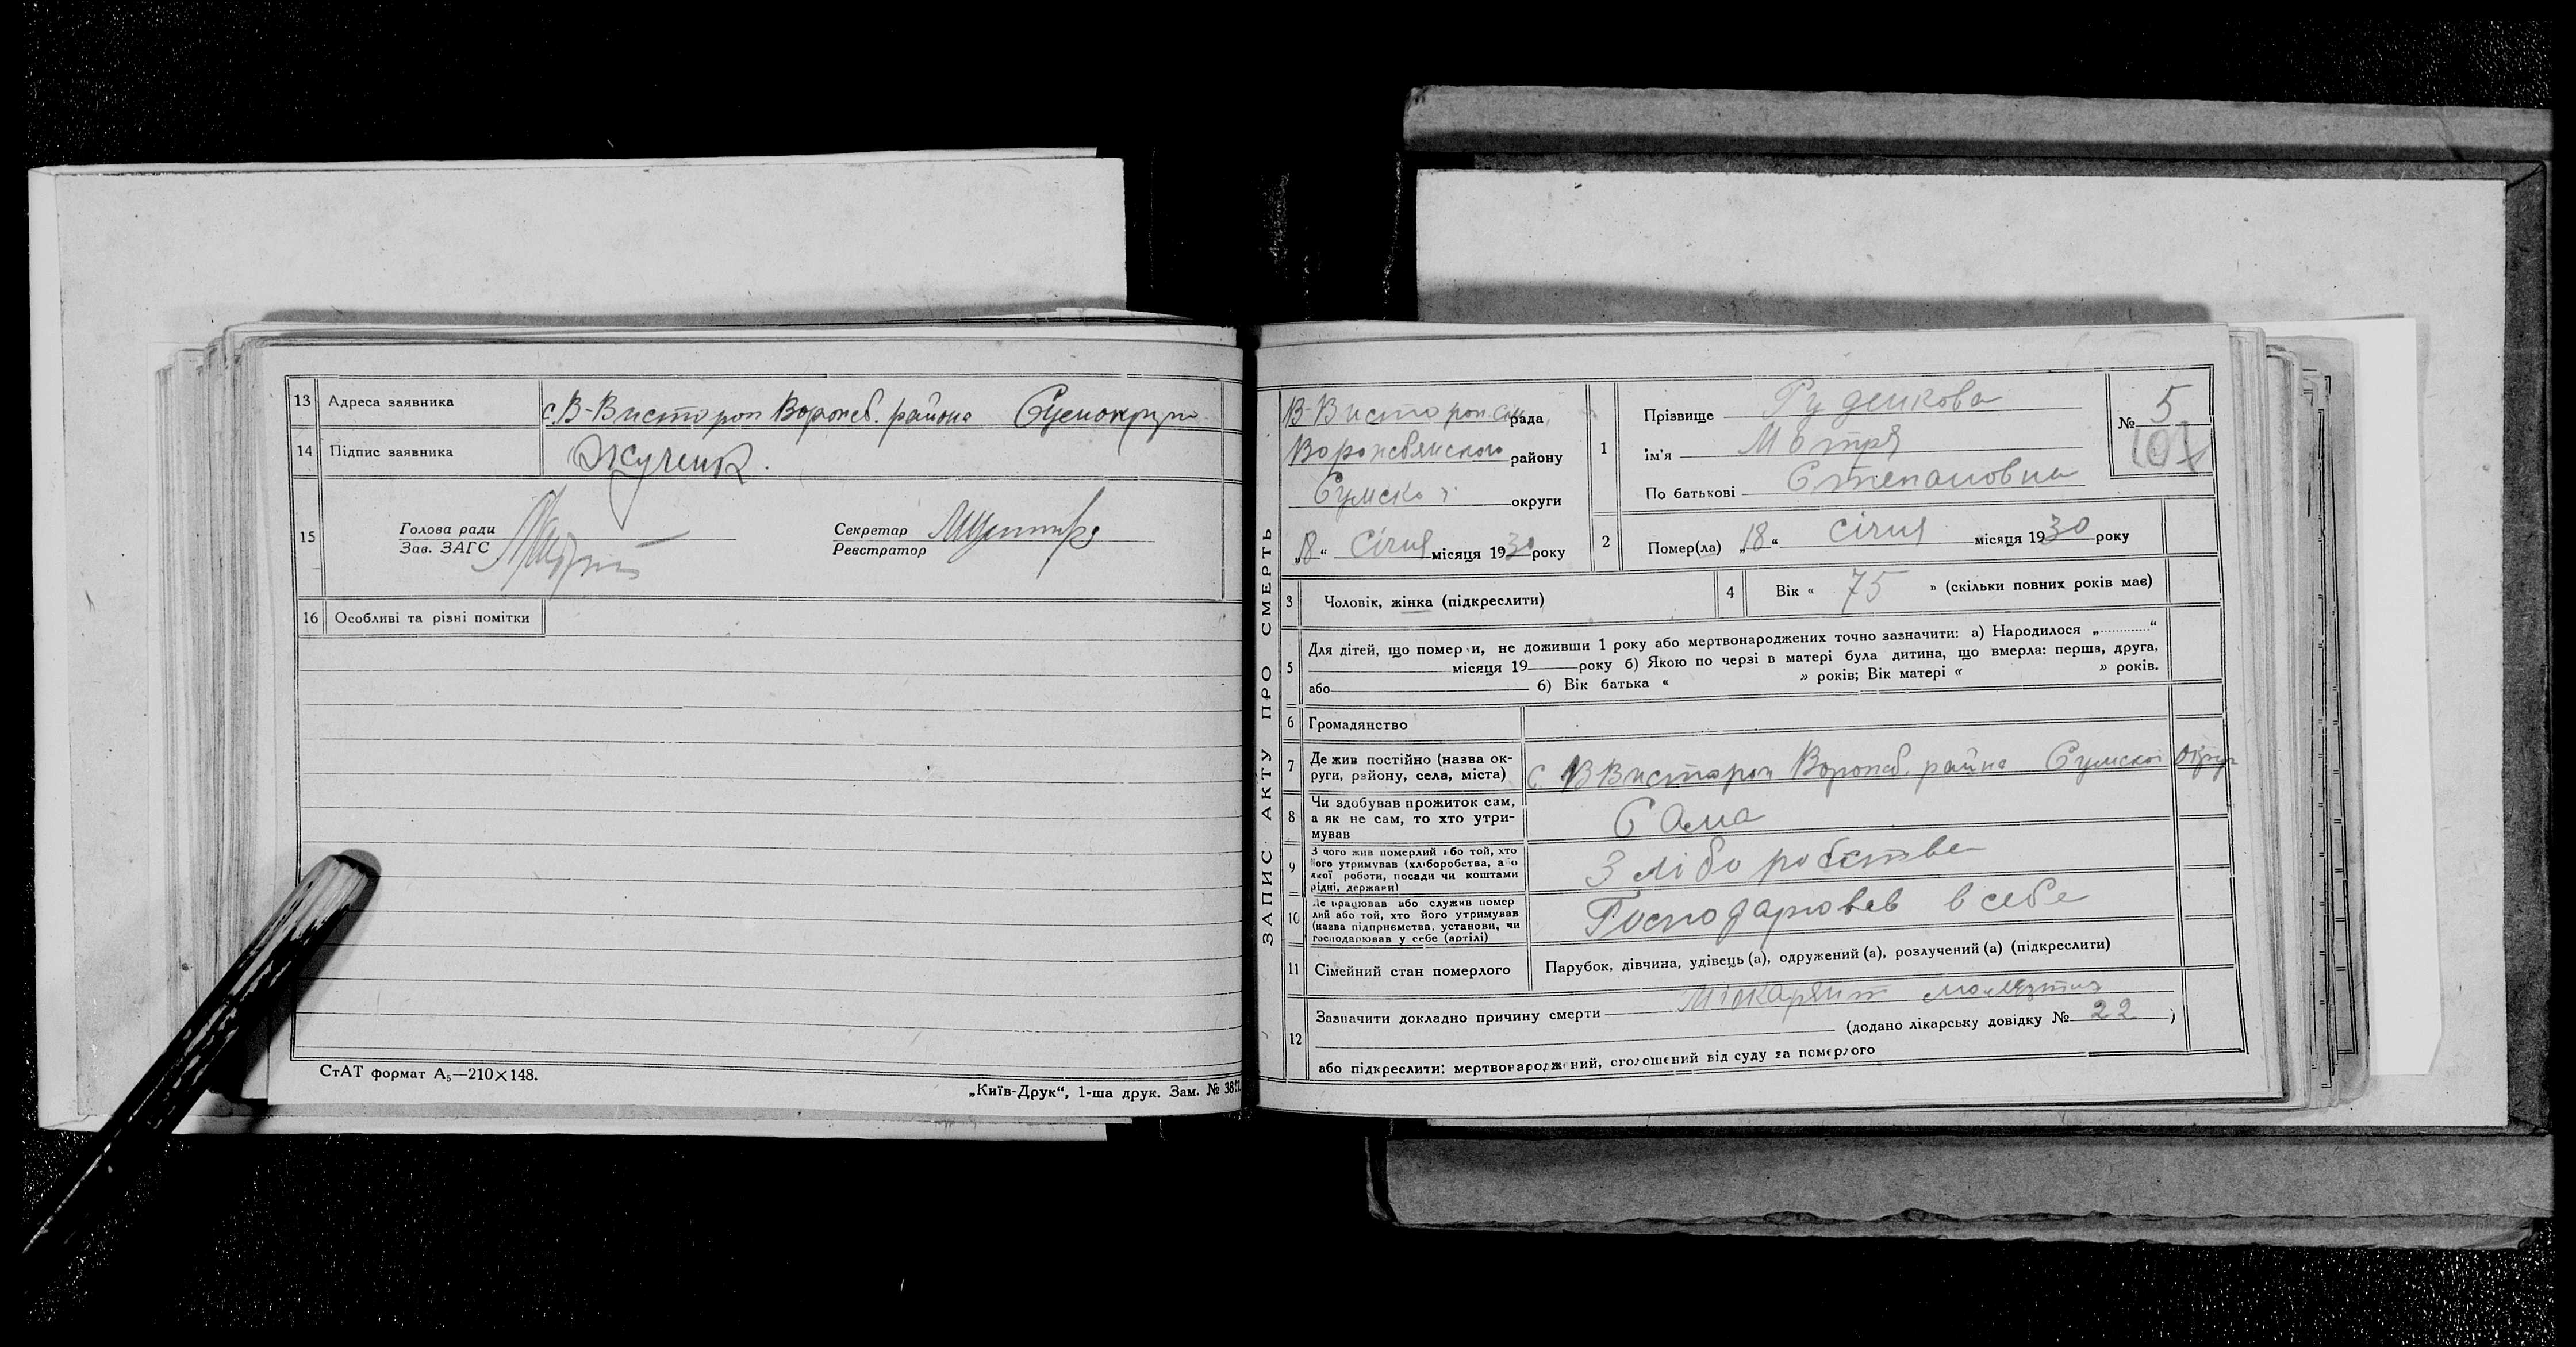 13 Адреса заявника с. В-Вистороп Ворожб. района Сумокруги
14 Підпис заявника
15 Голова ради
Зав. ЗАГС
Секретар
Реєстратор
16 Особливі та різні помітки
СтАТ формат А₅—210×148.
„Київ-Друк“, 1-ша друк. Зам. №
ЗАПИС АКТУ ПРО СМЕРТЬ
В-Висторопська рада
Ворожбянского району
Сумської округи
„18“ Січня місяця 1930 року
1 Прізвище Руденкова
ім'я Мотря
По батькові Степановна
№ 5
2 Помер(ла) „18“ січня місяця 1930 року
3 Чоловік, жінка (підкреслити)
4 Вік « 75 » (скільки повних років має)
5 Для дітей, що померли, не доживши 1 року або мертвонароджених точно зазначити: а) Народилося „ “
місяця 19 року б) Якою по черзі в матері була дитина, що вмерла: перша, друга,
або б) Вік батька « » років; Вік матері « » років.
6 Громадянство
7 Де жив постійно (назва ок-
руги, району, села, міста) с. В Вистороп Ворожб. района Сумской Округи
8 Чи здобував прожиток сам,
а як не сам, то хто утри-
мував Сама
9 З чого жив померлий або той, хто
його утримував (хліборобства, а о
якої роботи, посади чи коштами
рідні, держави) З лібо робства
10 Де працював або служив помер
лий або той, хто його утримував
(назва підприємства, установи, чи
господарював у себе (артілі) Господарював в себе
11 Сімейний стан померлого Парубок, дівчина, удівець (а), одружений (а), розлучений (а) (підкреслити)
12 Зазначити докладно причину смерти Міокардит
(додано лікарську довідку № 22 )
або підкреслити: мертвонароджений, оголошений від суду за померлого